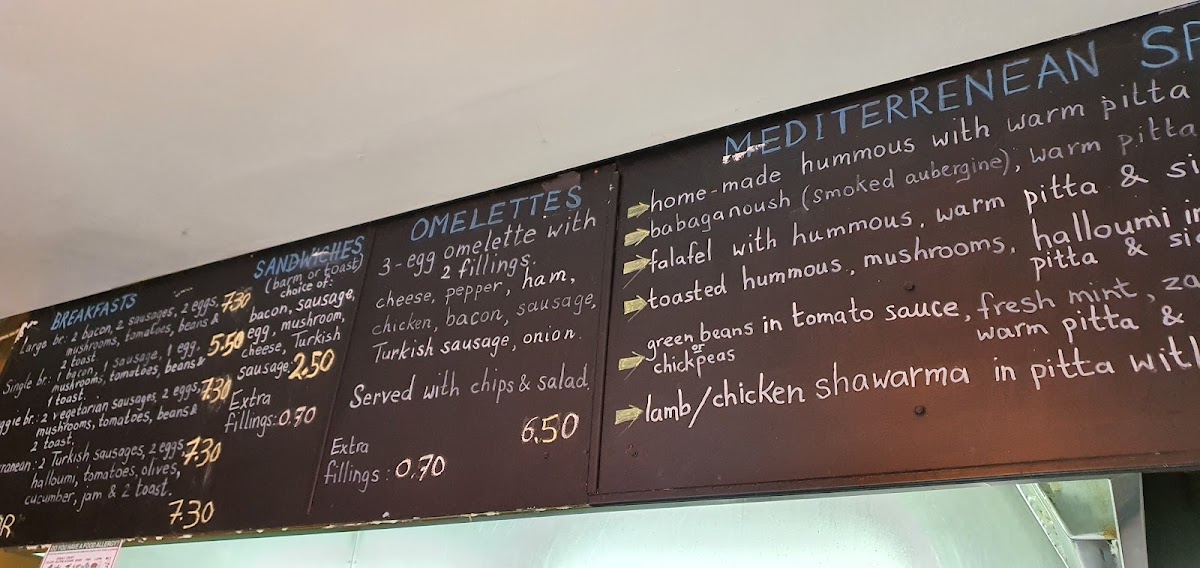 BREAKFASTS
Large br: 2 bacon, 2 sausages, 2 eggs, 7.30
mushrooms, tomatoes, beans &
2 toast
Single br: 1 bacon, 1 sausage, 1 egg, 5.50
mushrooms, tomatoes, beans &
1 toast.
ggie br.: 2 vegetarian sausages, 2 eggs, 7.30
mushrooms, tomatoes, beans &
2 toast.
ranean: 2 Turkish sausages, 2 eggs, 7.30
halloumi, tomatoes, olives,
cucumber, jam & 2 toast.
7.30
SANDWICHES
(barm or toast)
choice of:
bacon, sausage,
egg, mushroom,
cheese, Turkish
sausage. 2.50
Extra
fillings: 0.70
OMELETTES
3-egg omelette with
2 fillings.
cheese, pepper, ham,
chicken, bacon, sausage,
Turkish sausage, onion.
Served with chips & salad.
6.50
Extra
fillings: 0.70
MEDITERRENEAN SP
home-made hummous with warm pitta
babaganoush (smoked aubergine), warm pitta
falafel with hummous, warm pitta & si
toasted hummous, mushrooms, halloumi in
pitta & si
green beans in tomato sauce, fresh mint, za
or
chickpeas
warm pitta &
lamb/chicken shawarma in pitta wit
DO YOU HAVE A FOOD ALLERGY?